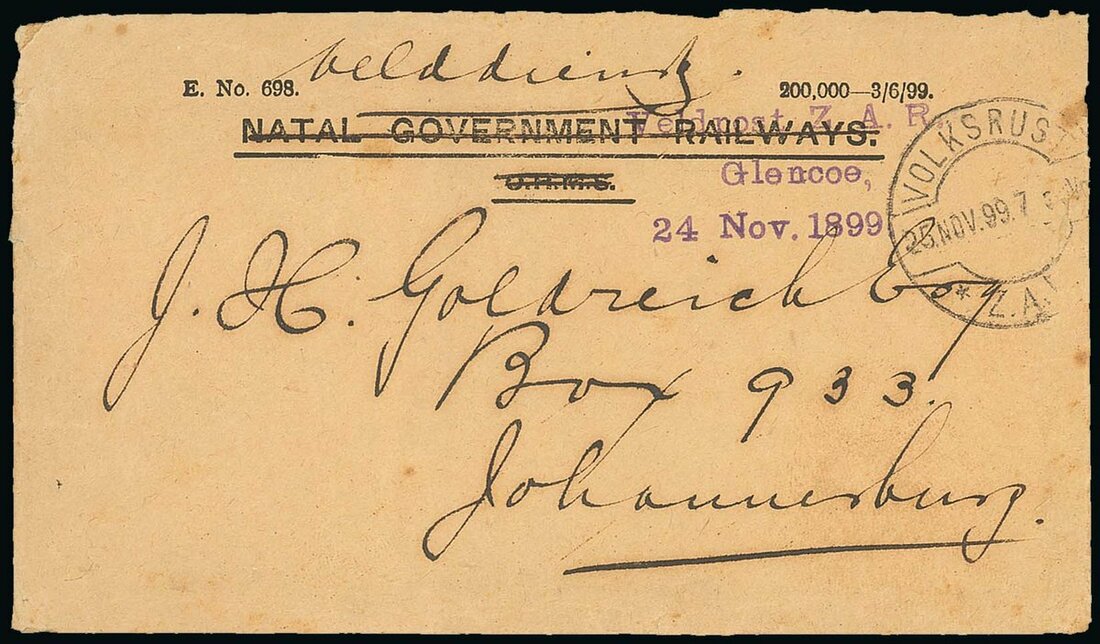 Velddienst.
E. No. 698. 200,000—3/6/99.
NATAL GOVERNMENT RAILWAYS.
O.H.M.S.
Veldpost Z. A. R.
Glencoe,
24 Nov. 1899
VOLKSRUST
25 NOV. 99. 7
* Z.A.
J. H. Goldreich Esq
Box 933.
Johannesburg.